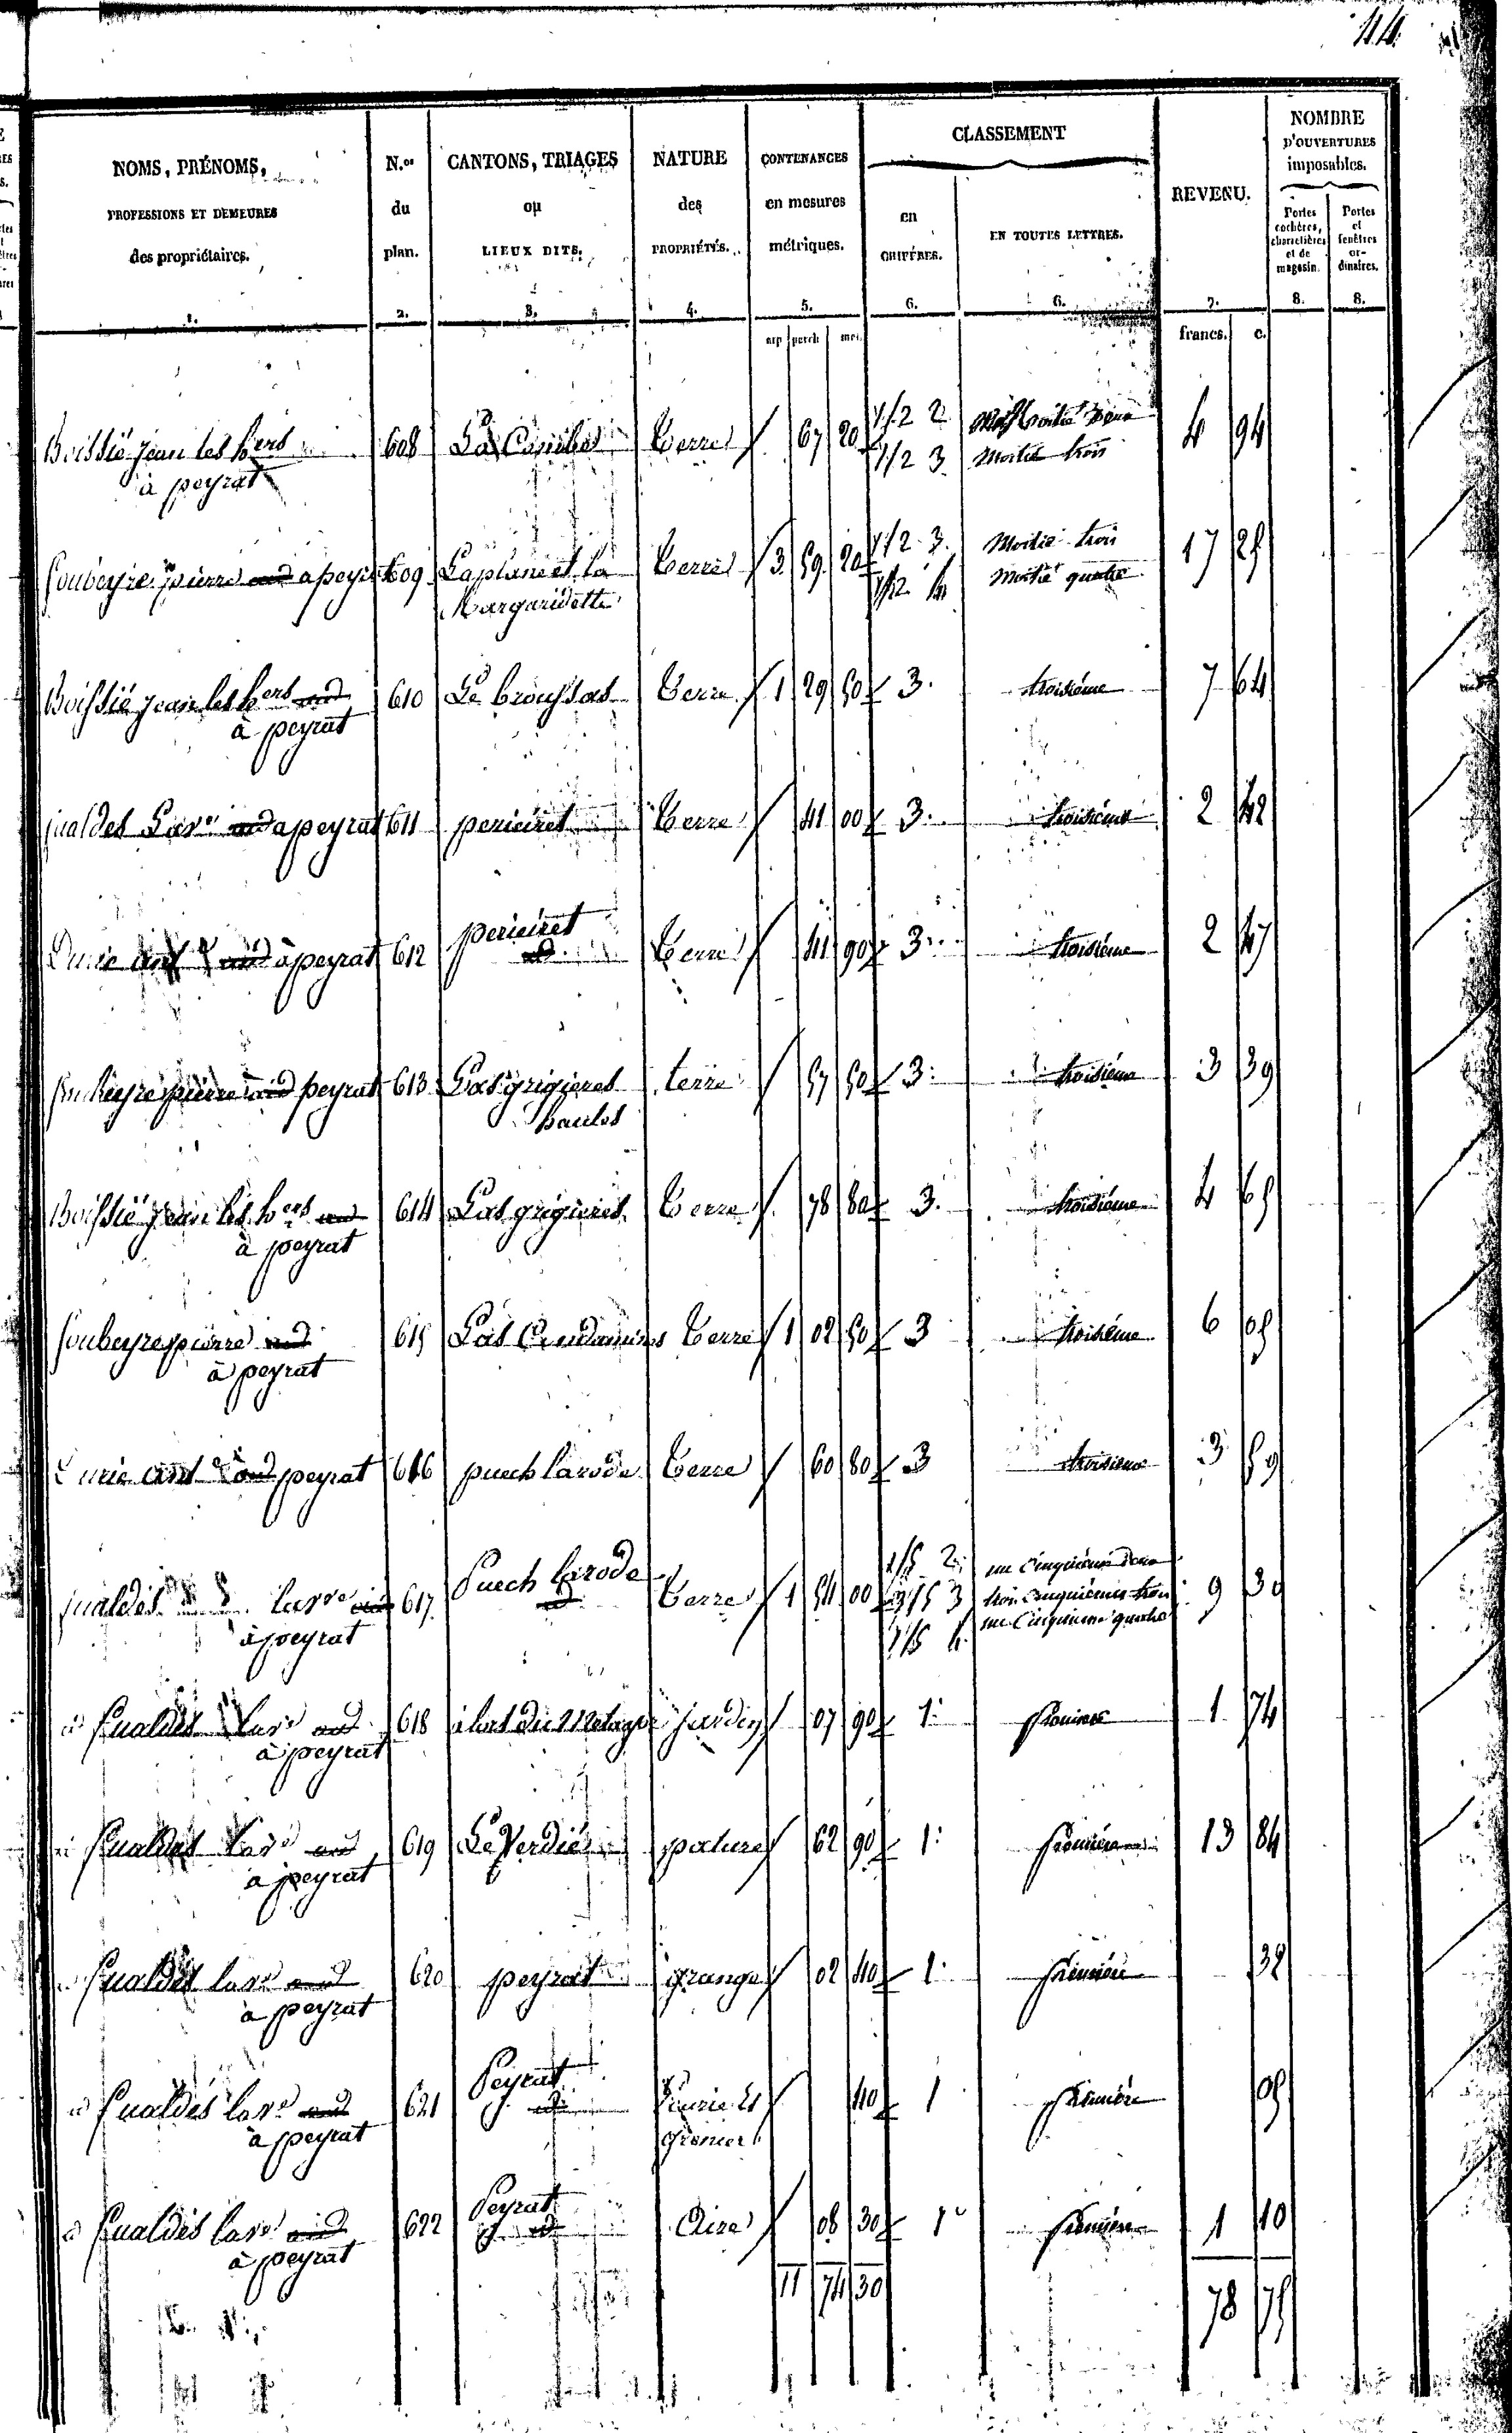 44.
NOMS, PRÉNOMS,
PROFESSIONS ET DEMEURES
des propriétaires.
1.
N.os
du
plan.
2.
CANTONS, TRIAGES
ou
LIEUX DITS.
3.
NATURE
des
PROPRIÉTÉS.
4.
CONTENANCES
en mesures
métriques.
5.
arp perch met.
CLASSEMENT
en
CHIFFRES.
6.
EN TOUTES LETTRES.
6.
REVENU.
7.
francs. c.
NOMBRE
D'OUVERTURES
imposables.
Portes
cochères,
charretières
et de
magasin.
8.
Portes
et
fenêtres
or-
dinaires.
8.
Boissié jean les hers 608 Terre 67 20 1/2 2 moitié deux 4 94
à peyrat 1/2 3 moitié trois
Soubeyre pierre a peyrat 609 Laplane et la Terre 3 59 20 1/2 3. moitié trois 17 25
Margaridette 1/2 4 moitié quatre
Boissié jean les hers 610 Le broussas Terre 1 29 50 3. troisième 7 64
à peyrat
jualdes Lavr a peyrat 611 perieiret Terre 41 00 3. troisième 2 42
à peyrat 612 perieiret Terre 41 90 3. troisième 2 47
Soubeyre pierre peyrat 613 Las grigieres terre 57 50 3. troisième 3 39
hautes
Boissié jean les hers 614 Las grigieres Terre 78 80 3. troisième 4 65
à peyrat
Soubeyre pierre 615 Las Condamines Terre 1 02 50 3 troisième 6 05
à peyrat
peyrat 616 puech larode Terre 60 80 3 troisième 3 59
jualdés 617. Puech larode Terre 1 54 00 1/5 2. un cinquième deux 9 30
à peyrat 3/5 3 trois cinquièmes trois
1/5 4. un cinquième quatre
Fualdés 618 jardin 07 90 1. première 1 74
à peyrat
Fualdés 619 Le Verdié pature 62 90 1. première 13 84
à peyrat
Fualdés 620 peyrat grange 02 40 1. première 32
à peyrat
Fualdés 621 Peyrat Ecurie et 40 1 première 05
à peyrat grenier
Fualdés 622 Peyrat Aire 08 30 1 première 1 10
à peyrat
11 74 30 78 75